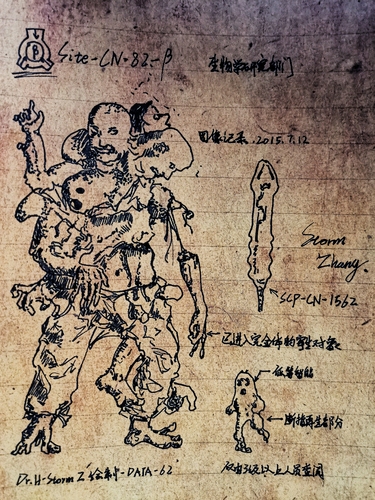 Site-CN-82-β
生物学研究部门
图像记录.2015.7.12
Storm
Zhang.
SCP-CN-1562
已进入完全体的寄生对象
断指再生部分
Dr.H-Storm Z 绘制-DATA-62
以上人员查阅